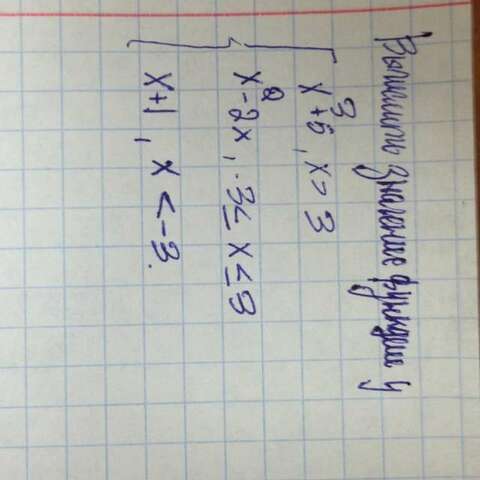 Вычислить значение функции y
x³+5, x>3
x²-2x, -3≤x≤3
x+1, x<-3.